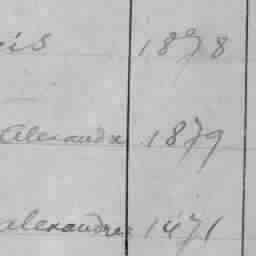 1878
Alexandre 1879
Alexandre 1871